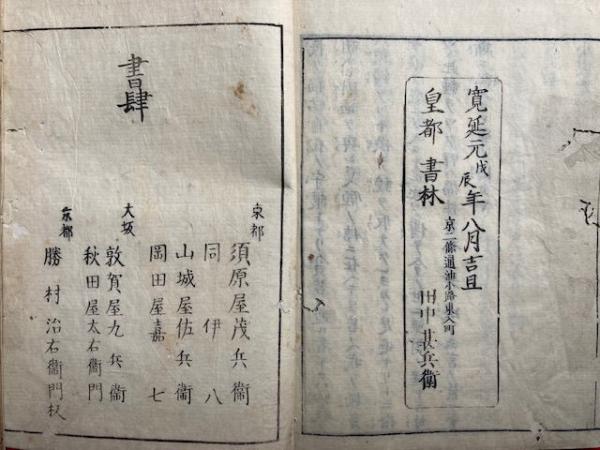 寛延元戊辰年八月吉旦
皇都 書林
京二條通油小路東入町
田中甚兵衛
書肆
須原屋茂兵衛
同 伊八
山城屋佐兵衛
岡田屋嘉七
大坂
敦賀屋九兵衛
秋田屋太右衛門
京都
勝村治右衛門板